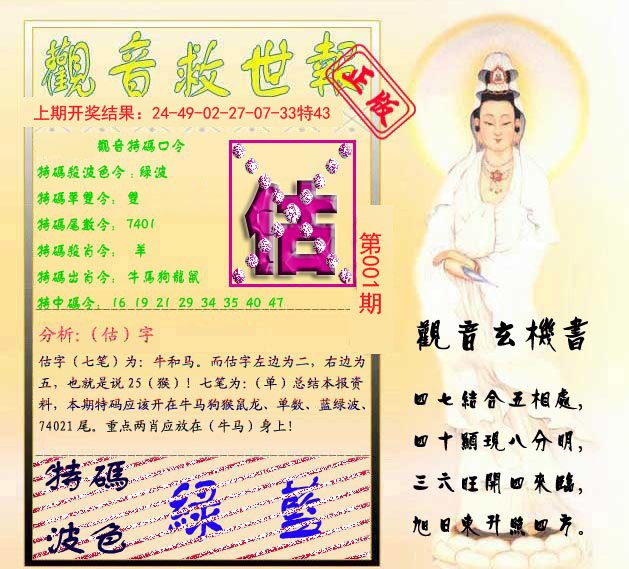 觀音救世報
正版
上期开奖结果：24-49-02-27-07-33特43
觀音特碼口令
特碼殺波色令：綠波
特碼單雙令： 雙
特碼尾數令： 7401
特碼殺肖令： 羊
特碼出肖令： 牛馬狗龍鼠
特中碼令： 16 19 21 29 34 35 40 47
估
第001期
分析:（估）字
估字（七笔）为：牛和马。而估字左边为二，右边为
五，也就是说 25（猴）！七笔为：（单）总结本报资
料，本期特码应该开在牛马狗猴鼠龙、单数、蓝绿波、
74021 尾。重点两肖应放在（牛马）身上！
特碼
波色
綠 藍
觀音玄機書
四七結合五相處，
四十顯現八分明，
三六旺開四來臨，
旭日東升照四方。